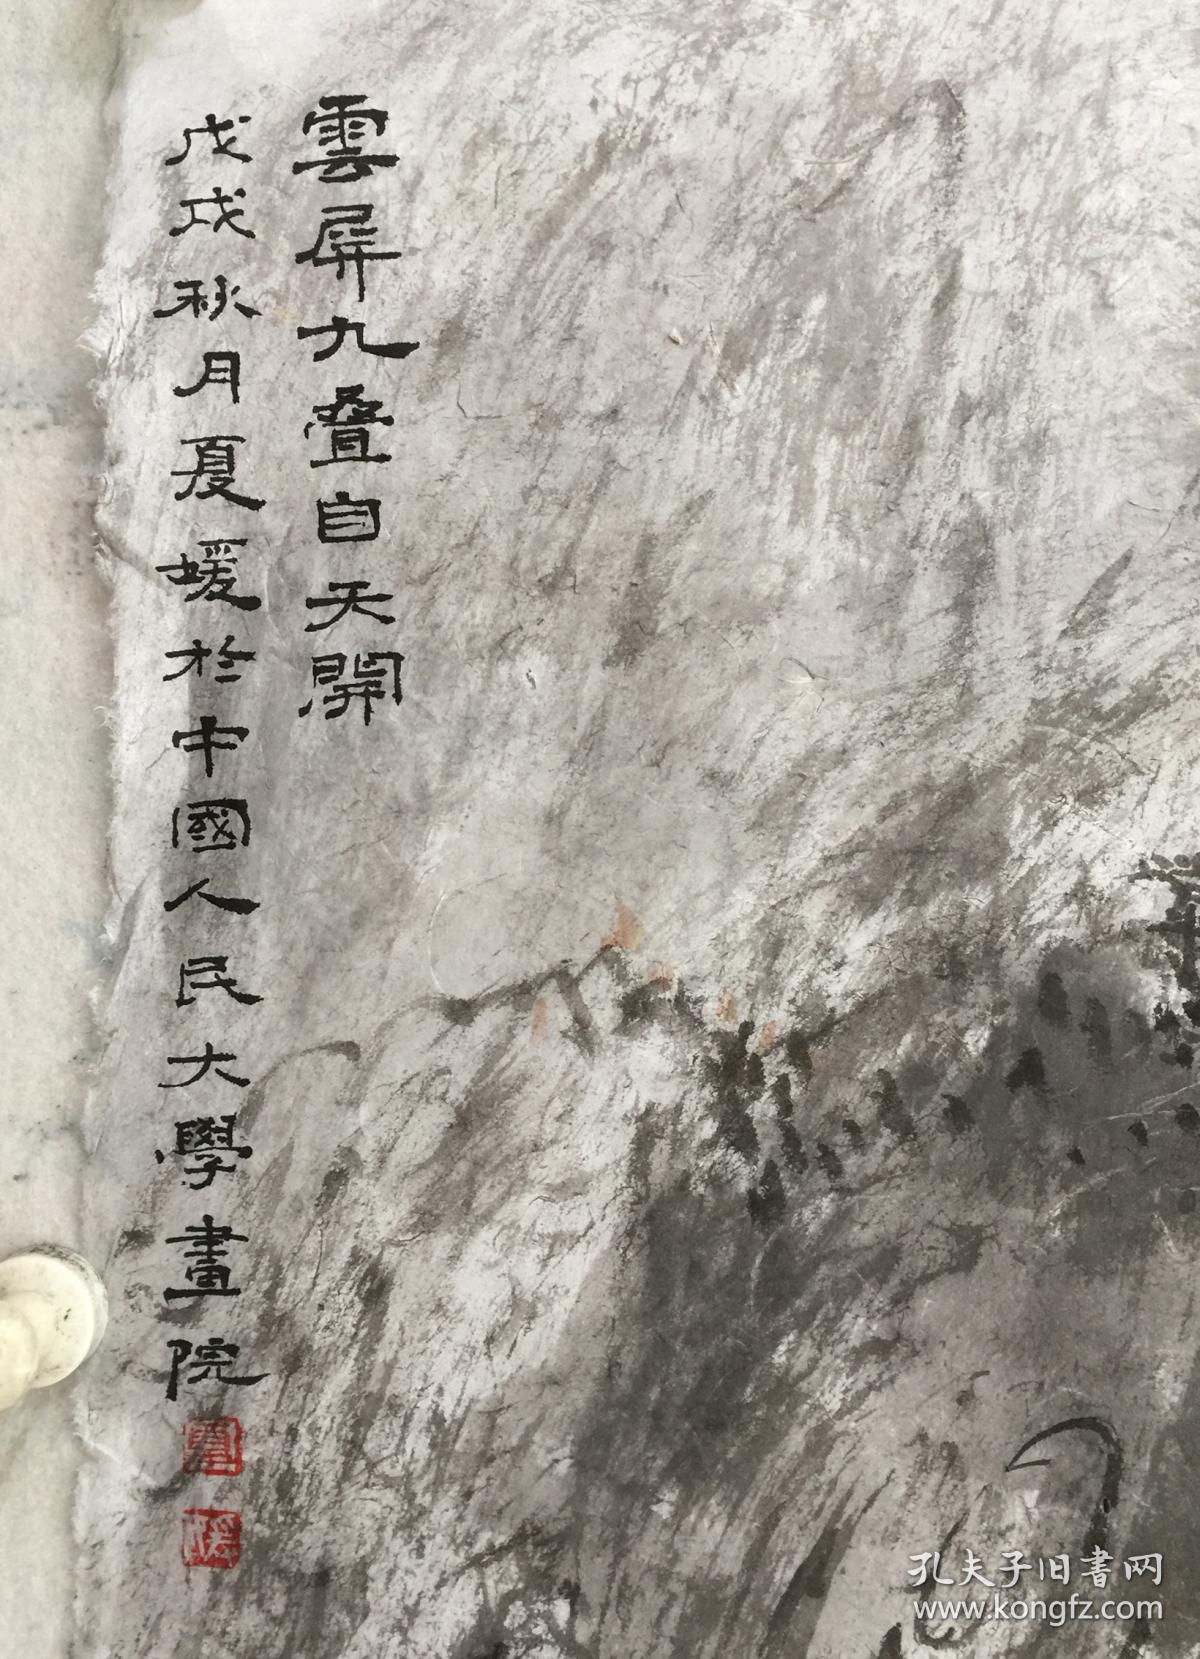 雲屏九疊自天開
戊戌秋月夏媛於中國人民大學畫院
夏
媛
孔夫子旧書网
www.kongfz.com